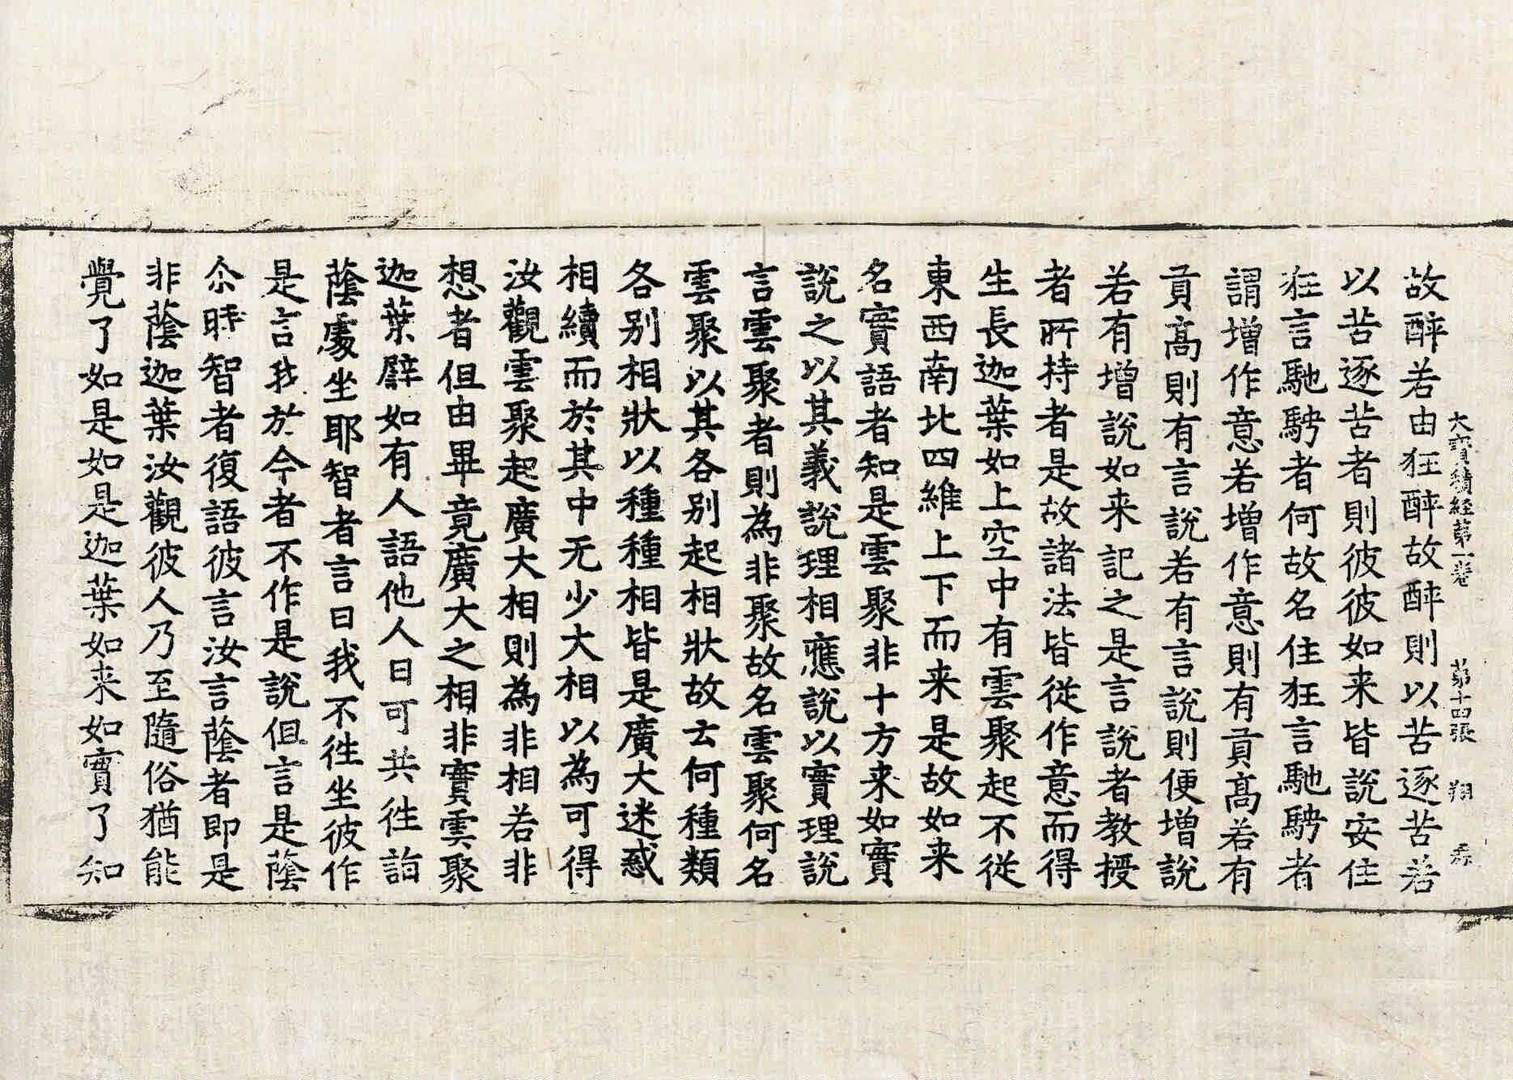 大寶積經第一卷　第十四張　翔
故醉若由狂醉故醉則以苦逐苦若
以苦逐苦者則彼彼如来皆說安住
狂言馳騁者何故名住狂言馳騁者
謂增作意若增作意則有貢高若有
貢高則有言說若有言說則便增說
若有增說如来記之是言說者教授
者所持者是故諸法皆從作意而得
生長迦葉如上空中有雲聚起不從
東西南北四維上下而来是故如来
名實語者知是雲聚非十方来如實
說之以其義說理相應說以實理說
言雲聚者則為非聚故名雲聚何名
雲聚以其各別起相狀故云何種類
各別相狀以種種相皆是廣大迷惑
相續而於其中无少大相以為可得
汝觀雲聚起廣大相則為非相若非
想者但由畢竟廣大之相非實雲聚
迦葉譬如有人語他人曰可共往詣
蔭處坐耶智者言曰我不往坐彼作
是言我於今者不作是說但言是蔭
尒時智者復語彼言汝言蔭者即是
非蔭迦葉汝觀彼人乃至隨俗猶能
覺了如是如是迦葉如来如實了知